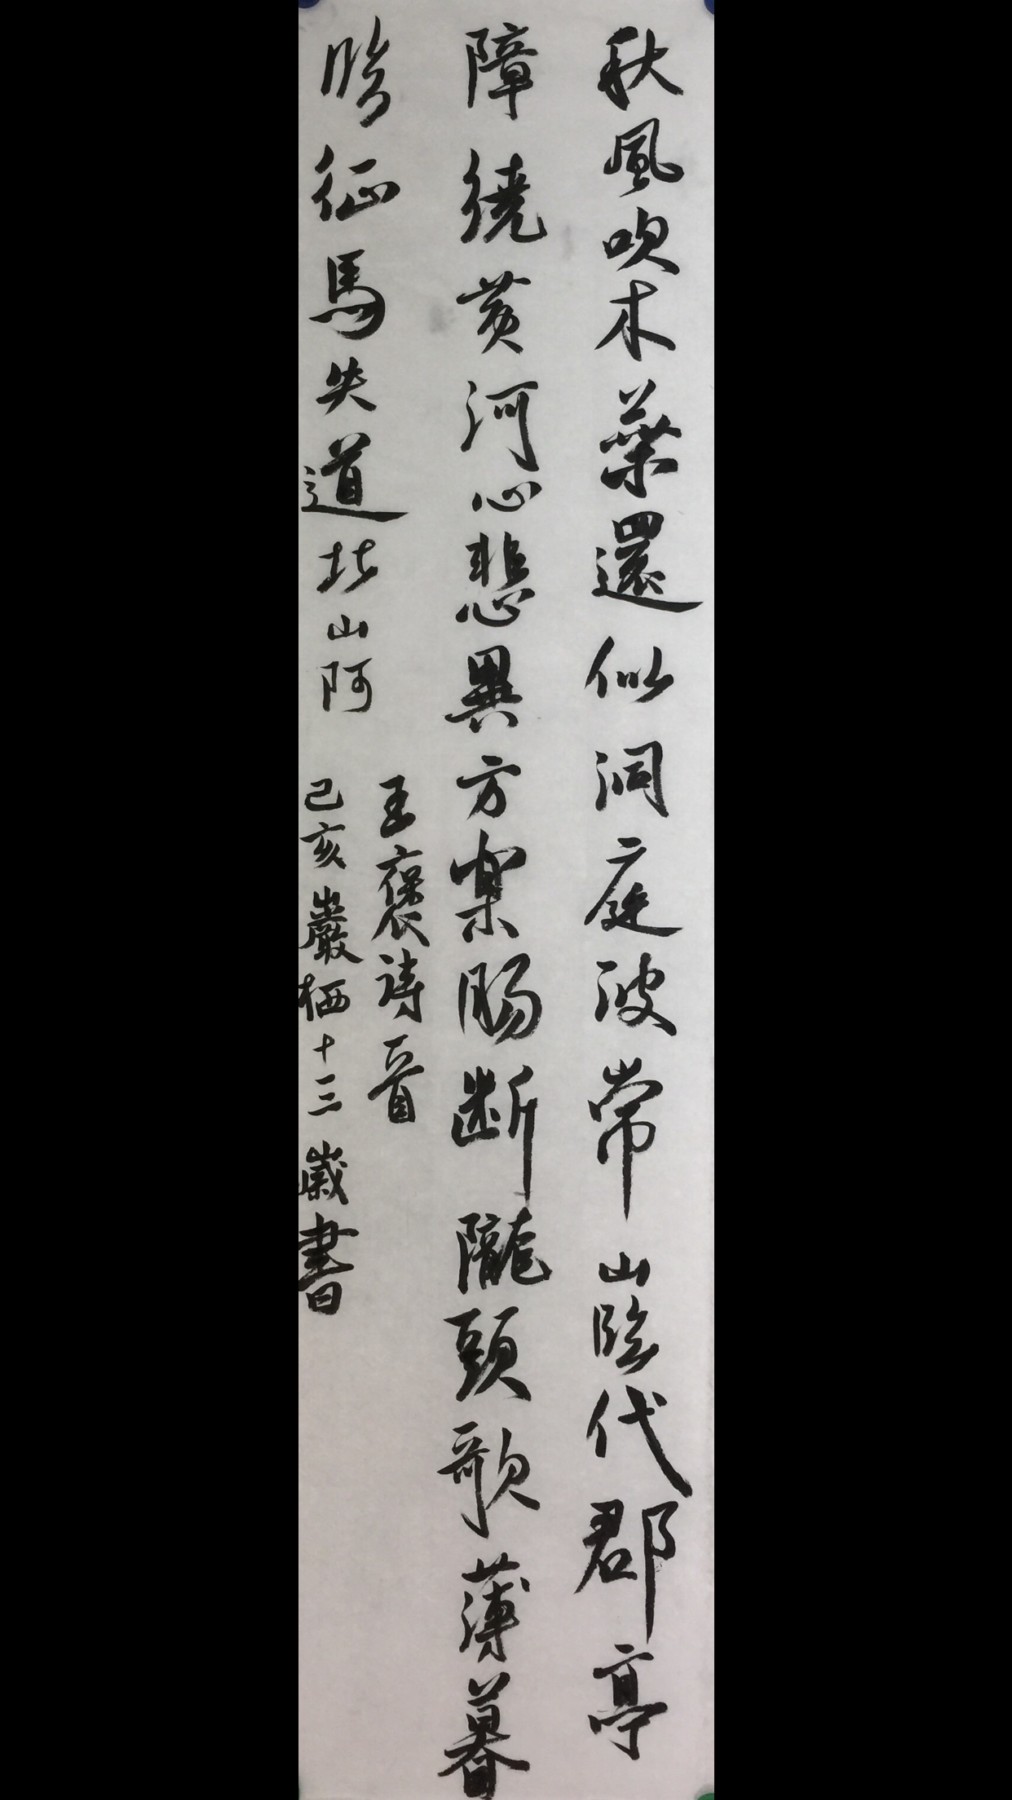 秋風吹木葉還似洞庭波常山臨代郡亭
障繞黃河心悲異方樂腸断隴頭歌薄暮
臨征馬失道北山阿
王褒詩一首
己亥巖栖十三歲書